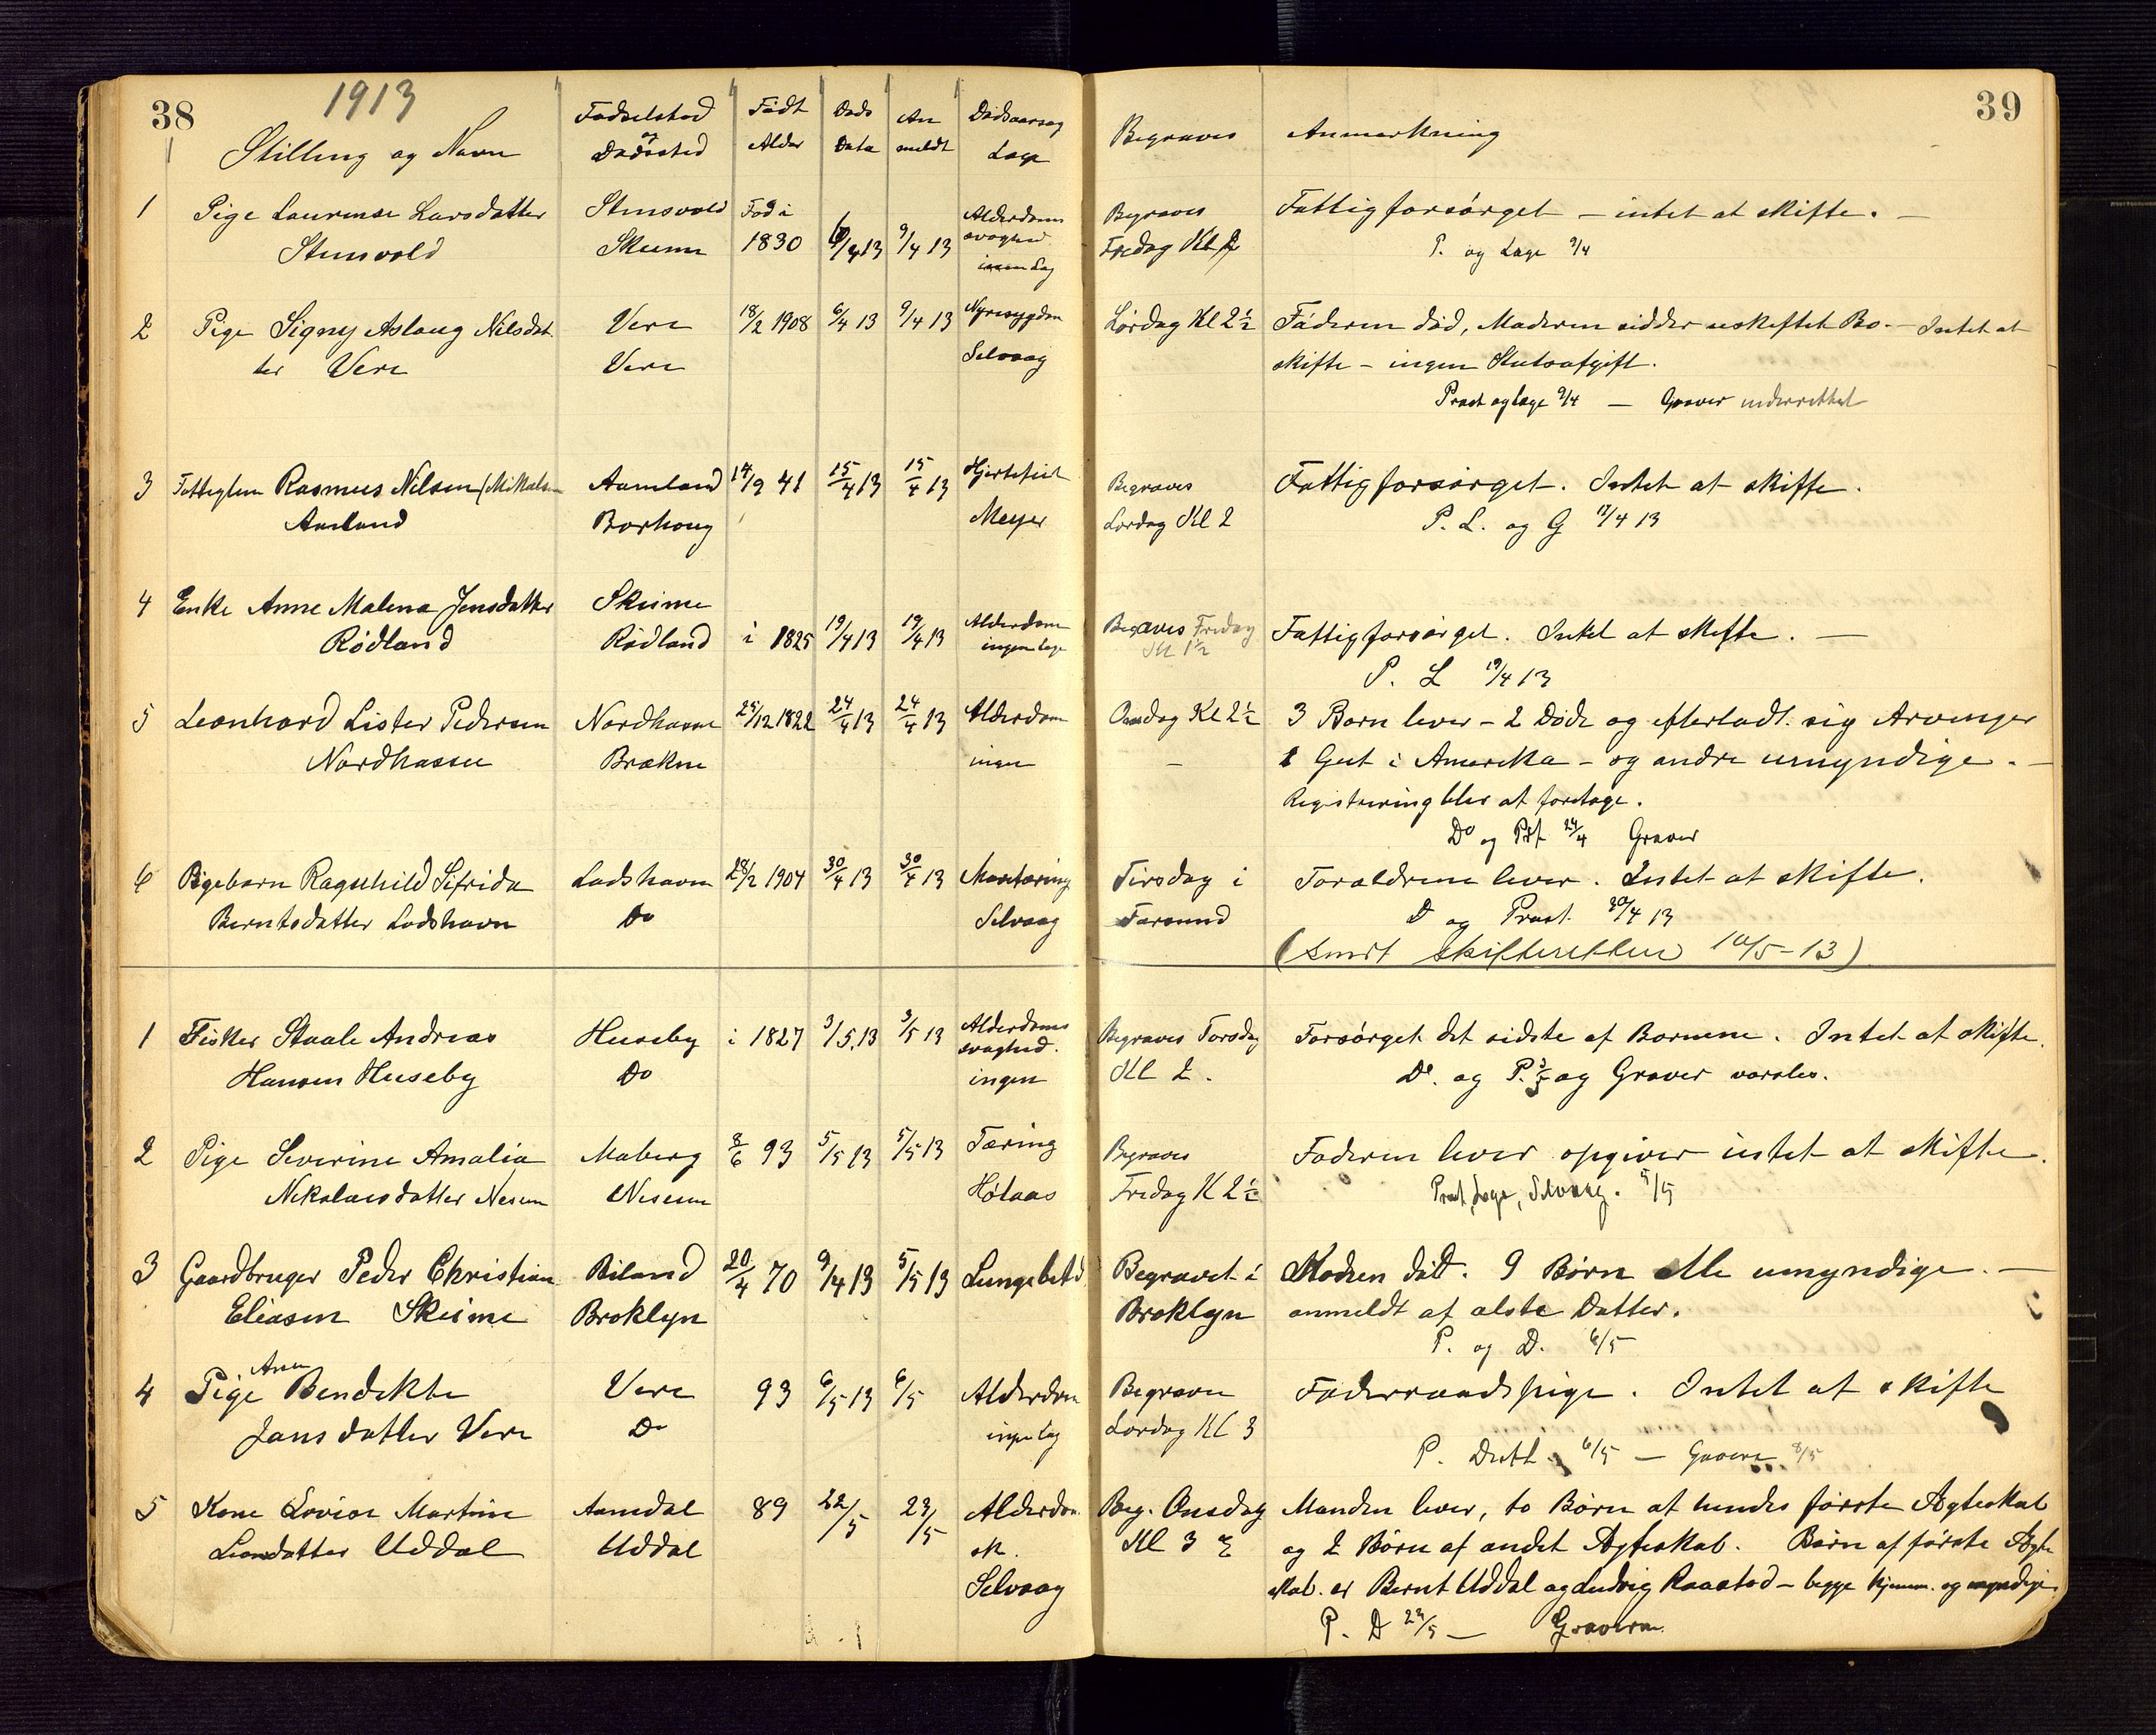 38
1913
Stilling og Navn
Fødselsted og Dødssted
Født Alder
Døds Data
An meldt
Dødsaarsag Læge
Begraves
Anmærkning
39
1 Pige Laurense Larsdatter Stensvold Fød i Alderdoms Begraves Fattigforsørget – intet at skifte. –
Stensvold Skeime 1830 6/4 13 9/4 13 svaghed Fredag Kl 2 P. og Læge 9/4
ingen Læg
2 Pige Signy Aslaug Nilsdat Vere 18/2 1908 6/4 13 9/4 13 Nyresygdom Lørdag Kl 2 1/2 Faderen død, Moderen sidder uskiftet Bo. – Intet at
ter Vere Vere Selvaag skifte – ingen Statsafgift.
Præst og læge 9/4 – Graver underrettet
3 Fattiglem Rasmus Nilsen (Mikalsen Aamland 14/9 41 15/4 13 15/4 13 Hjertefeil Begraves Fattigforsørget. Intet at skifte.
Aamland Borhoug Meyer Lørdag Kl 2 P. L. og G /4 13
4 Enke Anne Malena Jensdatter Skeime
Rødland Rødland i 1825 19/4 13 19/4 13 Alderdom ingen læge Begraves Fredag Kl 1 1/2 Fattigforsørget. Intet at skifte. –
P. L 19/4 13
5 Leonhard Lister Pedersen Nordhassel /12 1822 24/4 13 24/4 13 Alderdom Onsdag Kl 2 1/2 3 Børn lever – 2 Døde og efterladt sig Arvinger
Nordhassel Brækne ingen – 1 Gut i Amerika – og andre umyndige. –
Registrering blev at foretage.
Do og Pst 24/4 Graver
6 Pigebarn Ragnhild Sifrida Ladshavn 28/2 1904 30/4 13 30/4 13 Selvaag Tirsdag i Forældrene lever. Intet at skifte.
Berntsdatter Lodshavn Do Farsund D og Præst. 30/4 13
(Smst skifteretten 10/5-13)
1 Fisker Staale Andreas Huseby i 1827 3/5.13 3/5 13 Alderdoms svaghed. Begraves Torsdag Forsørget det sidste af Børnene. Intet at skifte.
Hansen Huseby Do ingen Kl 2. Do. og P. 3/5 og Graver varsles.
2 Pige Severine Amalia Maberg 8/6 93 5/5 13 5/5 13 Tæring Begraves Faderen lever opgiver intet at skifte.
Nikolaisdatter Nesum Nesum Hølaas Fredag K 2 1/2 Præst, Læge, Selvaag. 5/5
3 Gaardbruger Peder Christian Biland 20/4 70 9/4 13 5/5 13 Lungebetd. Begravet i Konen død. 9 Børn alle umyndige. –
Eliasen Skeime Broklyn Broklyn anmeldt af ælste Datter.
P. og D. 6/5
4 Pige Ane Bendikte Vere 93 6/5 13 6/5 Alderdom Begraves Føderaadspige. Intet at skifte
Jansdatter Vere Do ingen læg Lørdag Kl 3
P. 6/5 – Graver 8/5
5 Kone Lovise Martine Aamdal 89 22/5 23/5 Alderdom Beg. Onsdag Manden lever, to Børn af hendes første Ægteskab
datter Uddal Uddal sk. Kl 3 og 2 Børn af andet Ægteskab. Børn af første Ægte
Selvaag skab. er Bernt Uddal og Ludvig Raastad – begge hjemme og myndige.
P. D 23/5 – Graveren